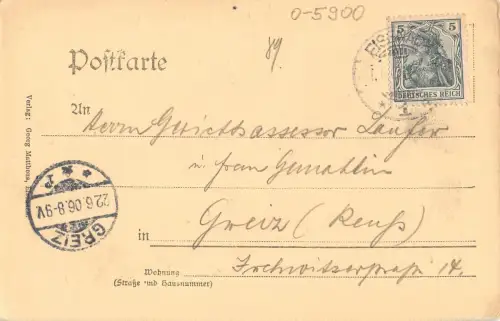 0-5900
89.
5 5
DEUTSCHES REICH
Postkarte
An
Herrn Gerichtsassessor Laufer
u. Frau Gemahlin
Greiz (Reuß)
in
14.
Wohnung
(Straße und Hausnummer)
Verlag: Georg
GREIZ
22.6.06.8-9V.